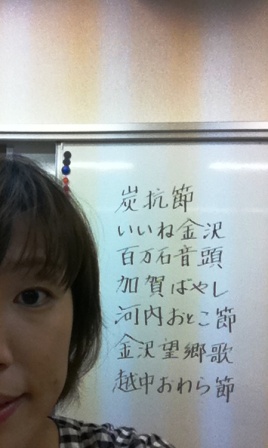 炭抗節
いいね金沢
百万石音頭
加賀ばやし
河内おとこ節
金沢望郷歌
越中おわら節